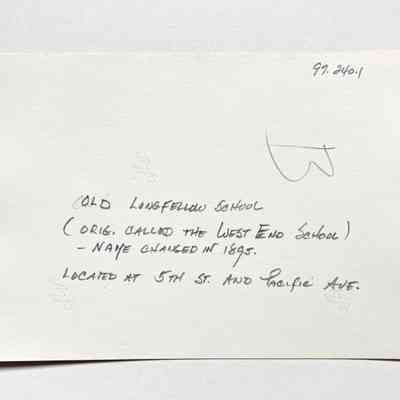 97.240.1
B
OLD LONGFELLOW SCHOOL
(ORIG. CALLED THE WEST END SCHOOL)
- NAME CHANGED IN 1895.
LOCATED AT 5TH ST. AND PACIFIC AVE.